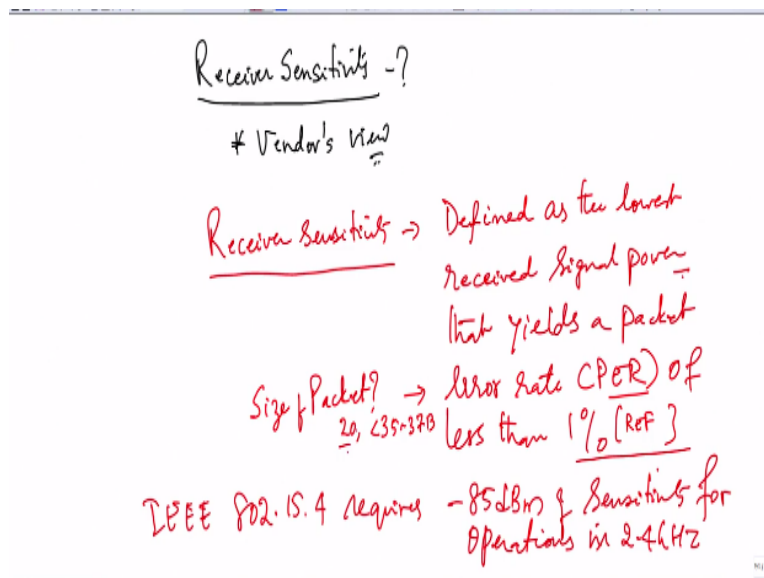 Receiver Sensitivity - ?
* Vendor's view
Receiver Sensitivity → Defined as the lowest
received signal power
that yields a packet
Size of Packet? → error rate (PER) of
20, <35-37B less than 1% [Ref]
IEEE 802.15.4 requires -85dBm of Sensitivity for
operations in 2.4GHz